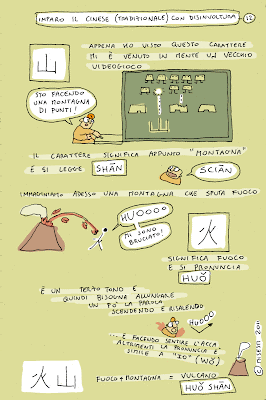 IMPARO IL CINESE (TRADIZIONALE) CON DISINVOLTURA 12
山
APPENA HO VISTO QUESTO CARATTERE
MI È VENUTO IN MENTE UN VECCHIO
VIDEOGIOCO
STO FACENDO
UNA MONTAGNA
DI PUNTI!
IL CARATTERE SIGNIFICA APPUNTO "MONTAGNA"
E SI LEGGE SHĀN
SCIĀN
IMMAGINIAMO ADESSO UNA MONTAGNA CHE SPUTA FUOCO
HUOOOO
MI SONO
BRUCIATO!
火
SIGNIFICA FUOCO
E SI PRONUNCIA
HUǑ
È UN TERZO TONO E
QUINDI BISOGNA ALLUNGARE
UN PO' LA PAROLA
SCENDENDO E RISALENDO
HUOOO
... E FACENDO SENTIRE L'ACCA
ALTRIMENTI LA PRONUNCIA È
SIMILE A "IO" (WǑ)
火山
FUOCO + MONTAGNA = VULCANO
HUǑ SHĀN
© MISENI 2011